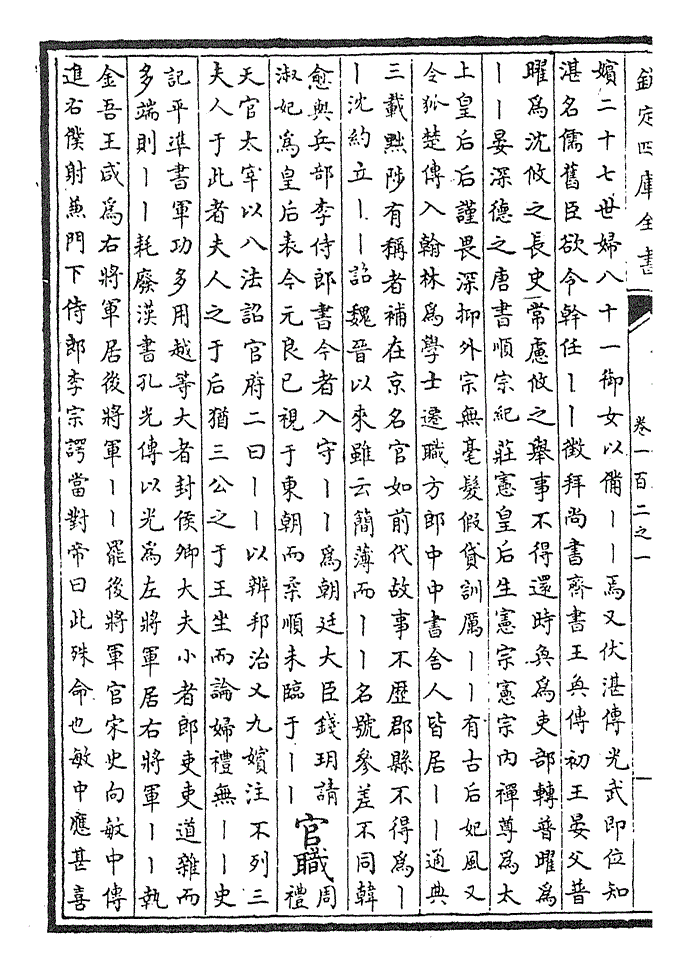 欽定四庫全書
卷一百二之一
一
嬪二十七世婦八十一御女以備丨丨焉又伏湛傳光武即位知
湛名儒舊臣欲令幹任丨丨徵拜尚書齊書王奐傳初王晏父普
曜為沈攸之長史常慮攸之舉事不得還時奐為吏部轉普曜為
丨丨晏深德之唐書順宗紀莊憲皇后生憲宗憲宗內禪尊為太
上皇后后謹畏深抑外宗無毫髮假貸訓厲丨丨有古后妃風又
令狐楚傳入翰林為學士遷職方郎中中書舍人皆居丨丨通典
三載黜陟有稱者補在京名官如前代故事不歴郡縣不得為丨
丨沈約立丨丨詔魏晉以來雖云簡薄而丨丨名號參差不同韓
愈與兵部李侍郎書今者入守丨丨為朝廷大臣錢玥請
淑妃為皇后表今元良已視于東朝而柔順未臨于丨丨
官職
周
禮
天官太宰以八法詔官府二曰丨丨以辨邦治又九嬪注不列三
夫人于此者夫人之于后猶三公之于王坐而論婦禮無丨丨史
記平準書軍功多用越等大者封侯卿大夫小者郎吏吏道雜而
多端則丨丨耗廢漢書孔光傳以光為左將軍居右將軍丨丨執
金吾王咸為右將軍居後將軍丨丨罷後將軍官宋史向敏中傳
進右僕射兼門下侍郎李宗諤當對帝曰此殊命也敏中應甚喜